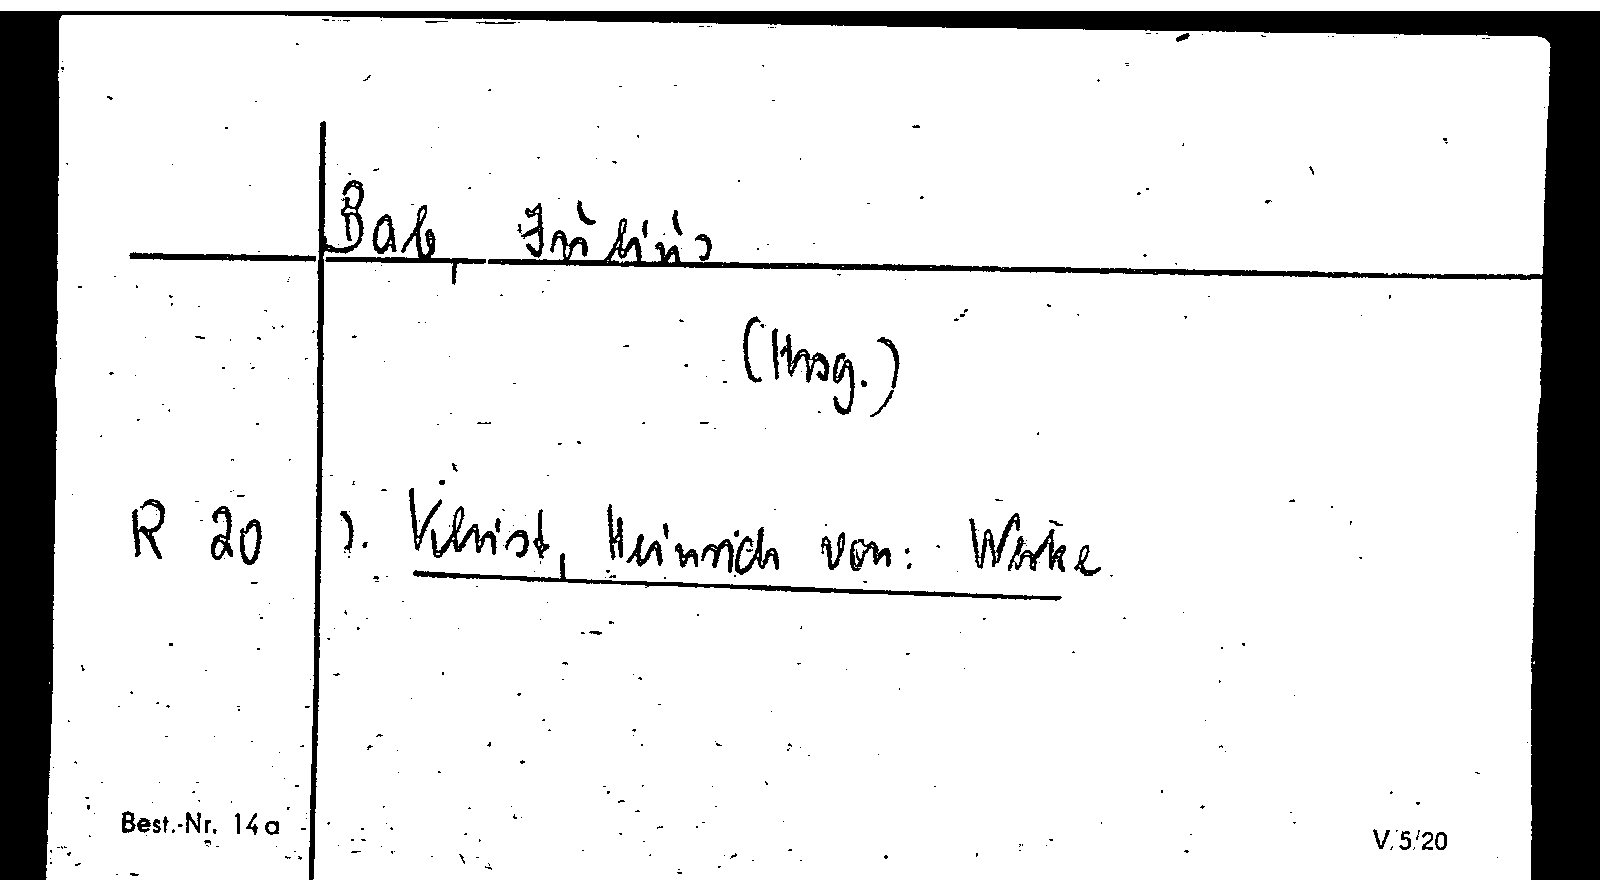 Bab, Julius
(Hrsg.)
R 20 s. Kleist, Heinrich von: Werke
Best.-Nr. 14a V/5/20